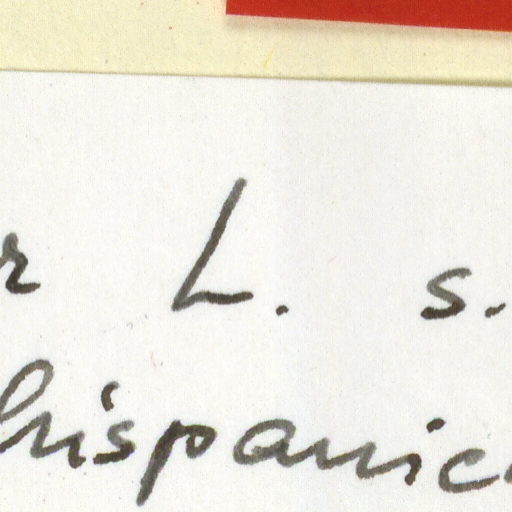 L. s.
hispanic